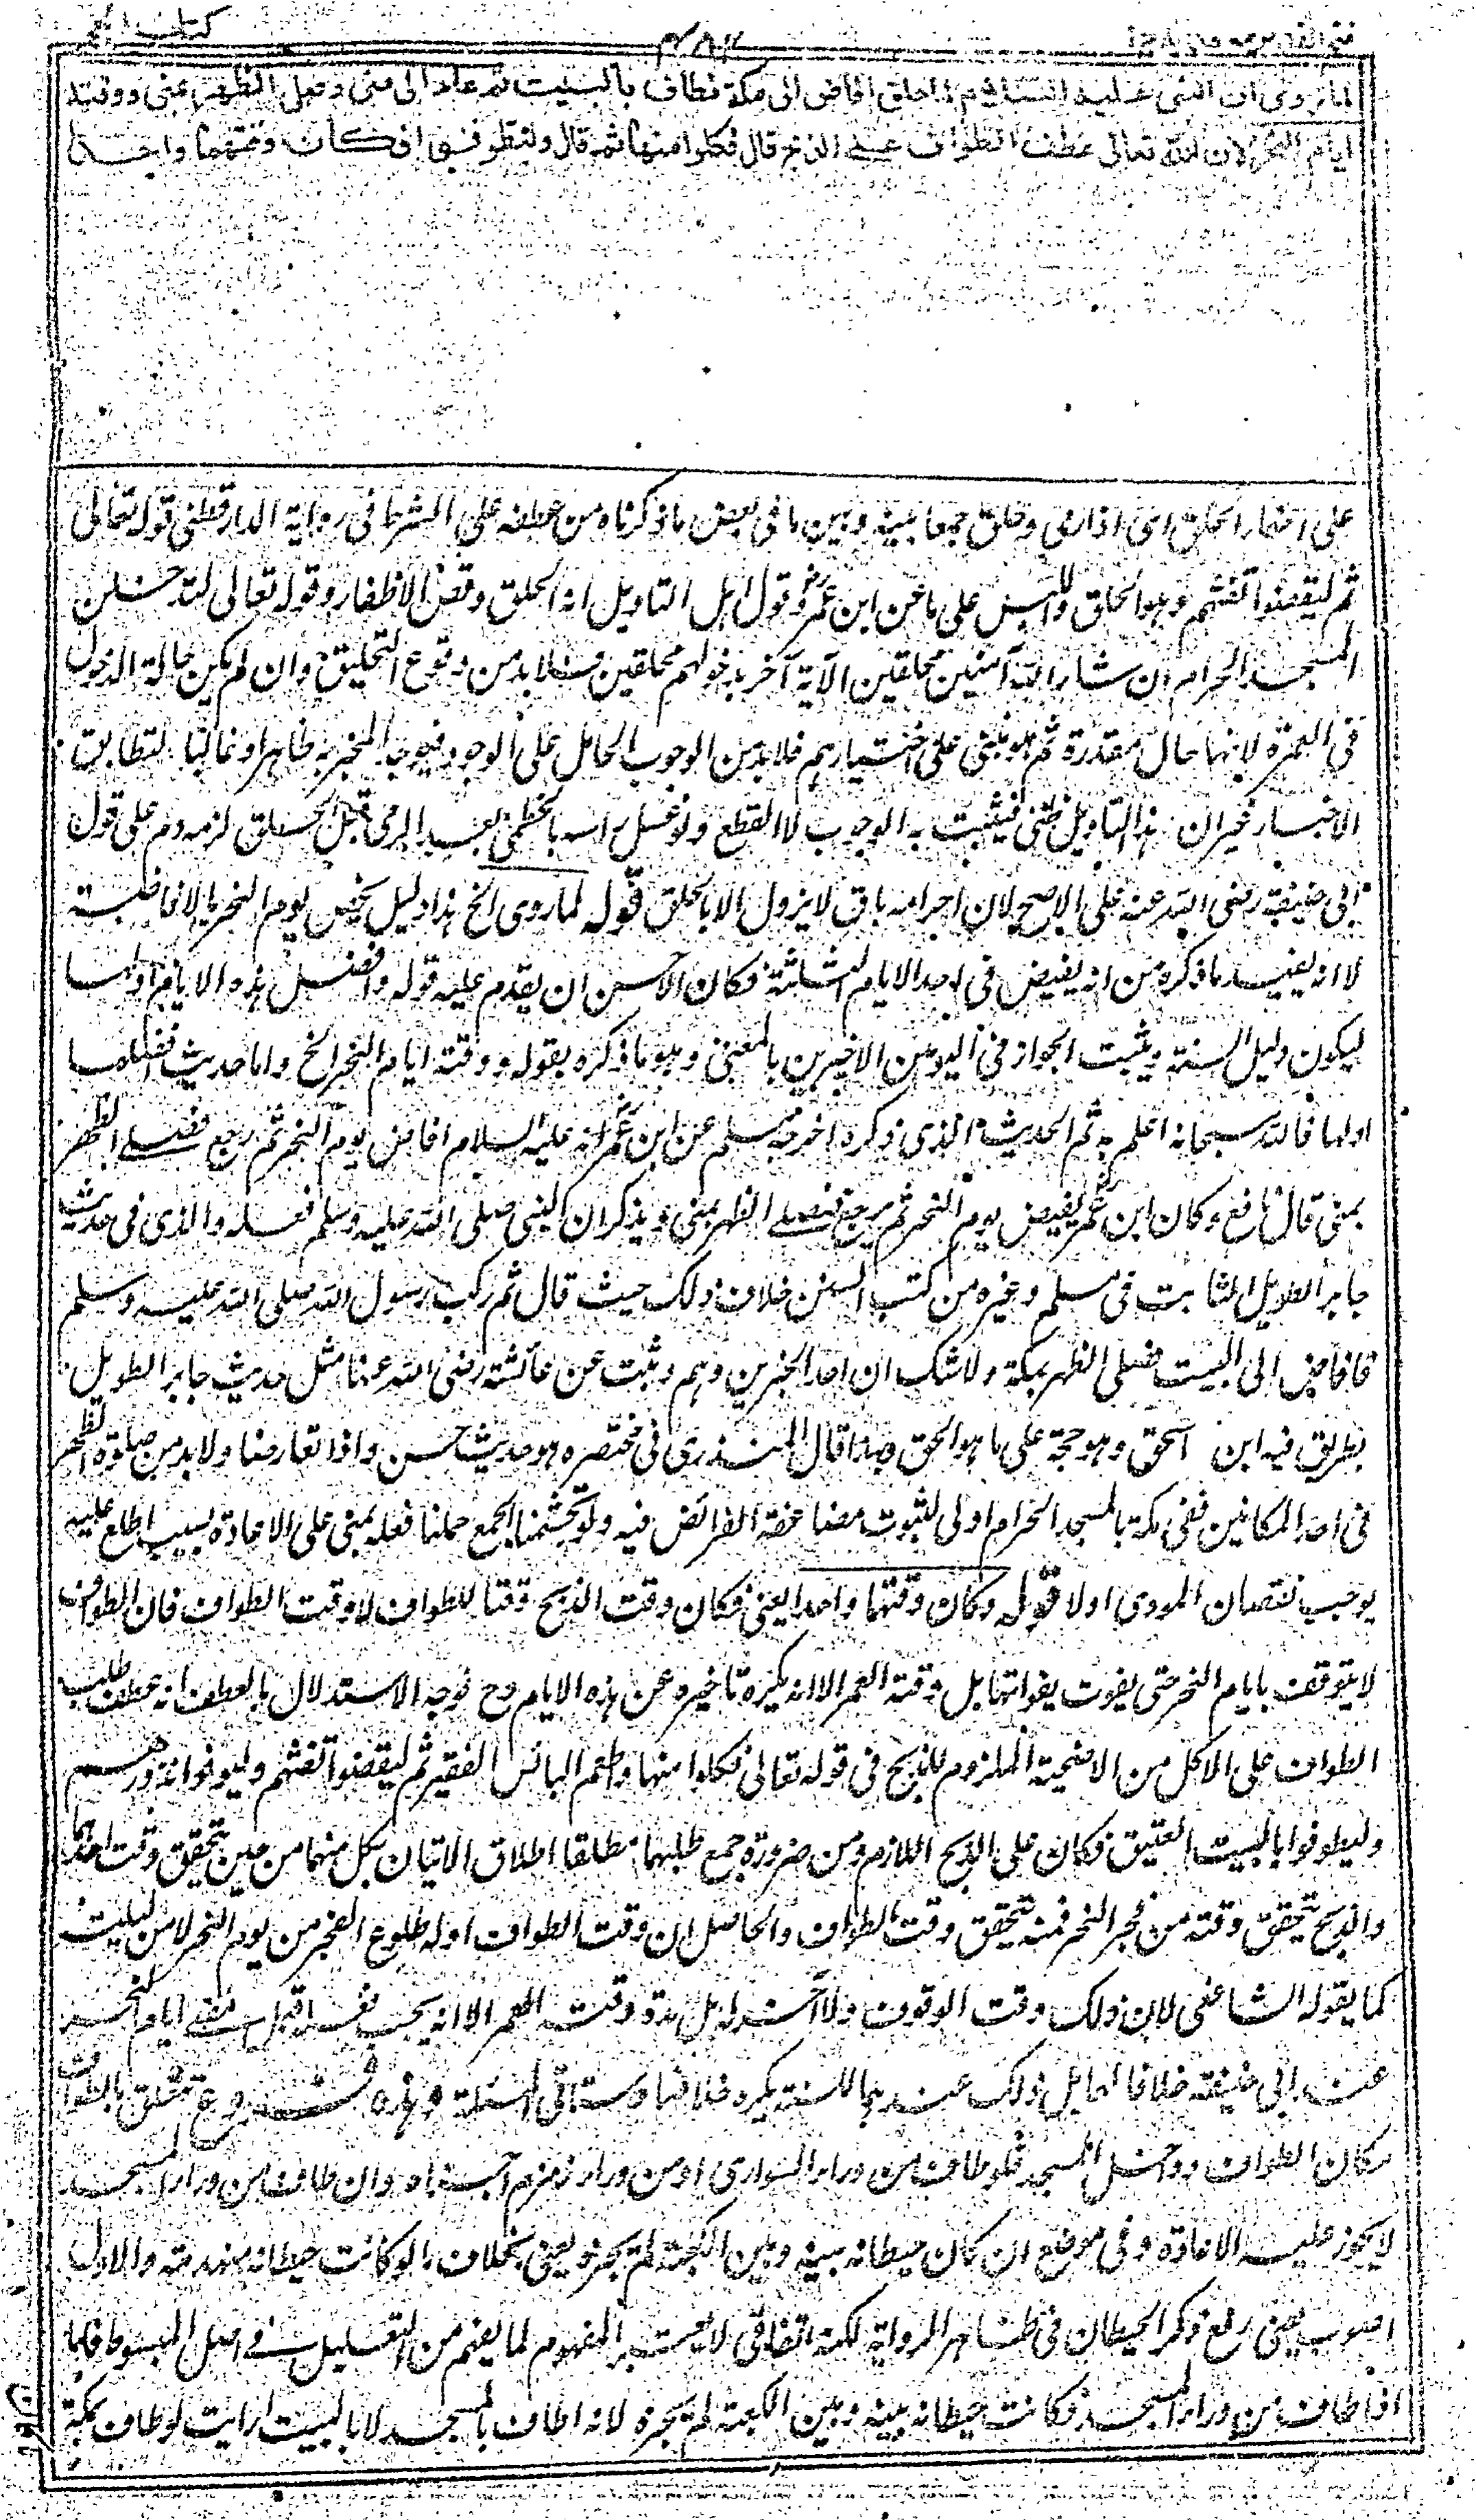 كتاب الحج
لما روى ان النبى عليه السلام لما حلق افاض الى مكة فطاف بالبيت ثم عاد الى منى وصلى الظهر بمنى ووقته
ايام النحر لان الله تعالى عطف الطواف على الذبح قال فكلوا منها ثم قال وليطوفوا فكان وقتهما واحدا
على اضمار الحلق اى اذا رمى وحلق جمعا بينه وبين ما فى بعض ما ذكرناه من عطفه على الشرط فى رواية الدارقطنى قوله تعالى
ثم ليقضوا تفثهم وهو الحلق واللبس على ما عن ابن عمر رض وقول اهل التاويل انه الحلق وقص الاظفار وقوله تعالى لتدخلن
المسجد الحرام ان شاء الله آمنين محلقين الآية اخبر بدخولهم محلقين فلا بد من وقوع التحليق وان لم يكن حالة الدخول
فى العمرة لانها حال مقدرة ثم هو مبنى على اختيارهم فلا بد من الوجوب الحامل على الوجود فيوجد المخبر به ظاهرا وغالبا لتطابق
الاخبار غير ان هذا التاويل ظنى فيثبت به الوجوب لا القطع ولو غسل راسه بالخطمى بعد الرمى قبل الحلق لزمه دم على قول
ابى حنيفة رضى الله عنه على الاصح لان احرامه باق لا يزول الا بالحلق قوله لما روى الخ هذا دليل يخص يوم النحر بالافاضة
لا انه يفيد ما ذكره من انه يفيض فى احد الايام الثلثة فكان الاحسن ان يقدم عليه قوله وافضل هذه الايام اولها
ليكون دليل السنة ويثبت الجواز فى اليومين الاخيرين بالمعنى وهو ما ذكره بقوله ووقته ايام النحر الخ واما حديث افضلها
اولها فالله سبحانه اعلم به ثم الحديث الذى ذكره اخرجه مسلم عن ابن عمر انه عليه السلام افاض يوم النحر ثم رجع فصلى الظهر
بمنى قال نافع وكان ابن عمر يفيض يوم النحر ثم يرجع فيصلى الظهر بمنى ويذكر ان النبى صلى الله عليه وسلم فعله والذى فى حديث
جابر الطويل الثابت فى مسلم وغيره من كتب السنن خلاف ذلك حيث قال ثم ركب رسول الله صلى الله عليه وسلم
فافاض الى البيت فصلى الظهر بمكة ولا شك ان احد الخبرين وهم وثبت عن عائشة رضى الله عنها مثل حديث جابر الطويل
بطريق فيه ابن اسحق وهو حجة على ما هو الحق ولهذا قال المنذرى فى مختصره هو حديث حسن واذا تعارضا ولا بد من صلوة الظهر
فى احد المكانين ففى مكة بالمسجد الحرام اولى لثبوت مضاعفة الفرائض فيه ولو تجشمنا الجمع حملنا فعله بمنى على الاعادة بسبب اطلع عليه
يوجب نقصان المؤدى اولا قوله وكان وقتهما واحدا يعنى فكان وقت الذبح وقتا للطواف لا وقت الطواف فان الطواف
لا يتوقف بايام النحر حتى يفوت بفواتها بل وقته العمر الا انه يكره تاخيره عن هذه الايام وح فوجه الاستدلال بالعطف انه عطف طلب
الطواف على الاكل من الاضحية الملزوم للذبح فى قوله تعالى فكلوا منها واطعموا البائس الفقير ثم ليقضوا تفثهم وليوفوا نذورهم
وليطوفوا بالبيت العتيق فكان على الذبح اللازم ومن ضرورة جمع طلبهما مطلقا اطلاق الاتيان بكل منهما من حين يتحقق وقت احدهما
والذبح يتحقق وقته من فجر النحر فمنه يتحقق وقت الطواف والحاصل ان وقت الطواف اوله طلوع الفجر من يوم النحر لا من ليلته
كما يقوله الشافعى لان ذلك وقت الوقوف ولا آخر له بل مدة وقته العمر الا انه يجب فعله قبل مضى ايام النحر
عند ابى حنيفة خلافا لهما بل ذلك عندهما السنة يكره خلافها وستاتى المسئلة وهذه فروع تتعلق بالطواف
مكان الطواف داخل المسجد فلو طاف من وراء السوارى او من وراء زمزم اجزأه وان طاف من وراء المسجد
لا يجوز عليه الاعادة وفى موضع ان كان حيطانه بينه وبين الكعبة لم يجزه يعنى بخلاف ما لو كانت حيطانه منهدمة والاول
اصوب يعنى رفع ذكر الحيطان فى ظاهر الرواية لكنه اتفاقى لا يعتبر المفهوم لما يفهم من التعليل فى اصل المبسوط فاما
اذا طاف من وراء المسجد فكانت حيطانه بينه وبين الكعبة لم يجزه لانه طاف بالمسجد لا بالبيت ارايت لو طاف بمكة